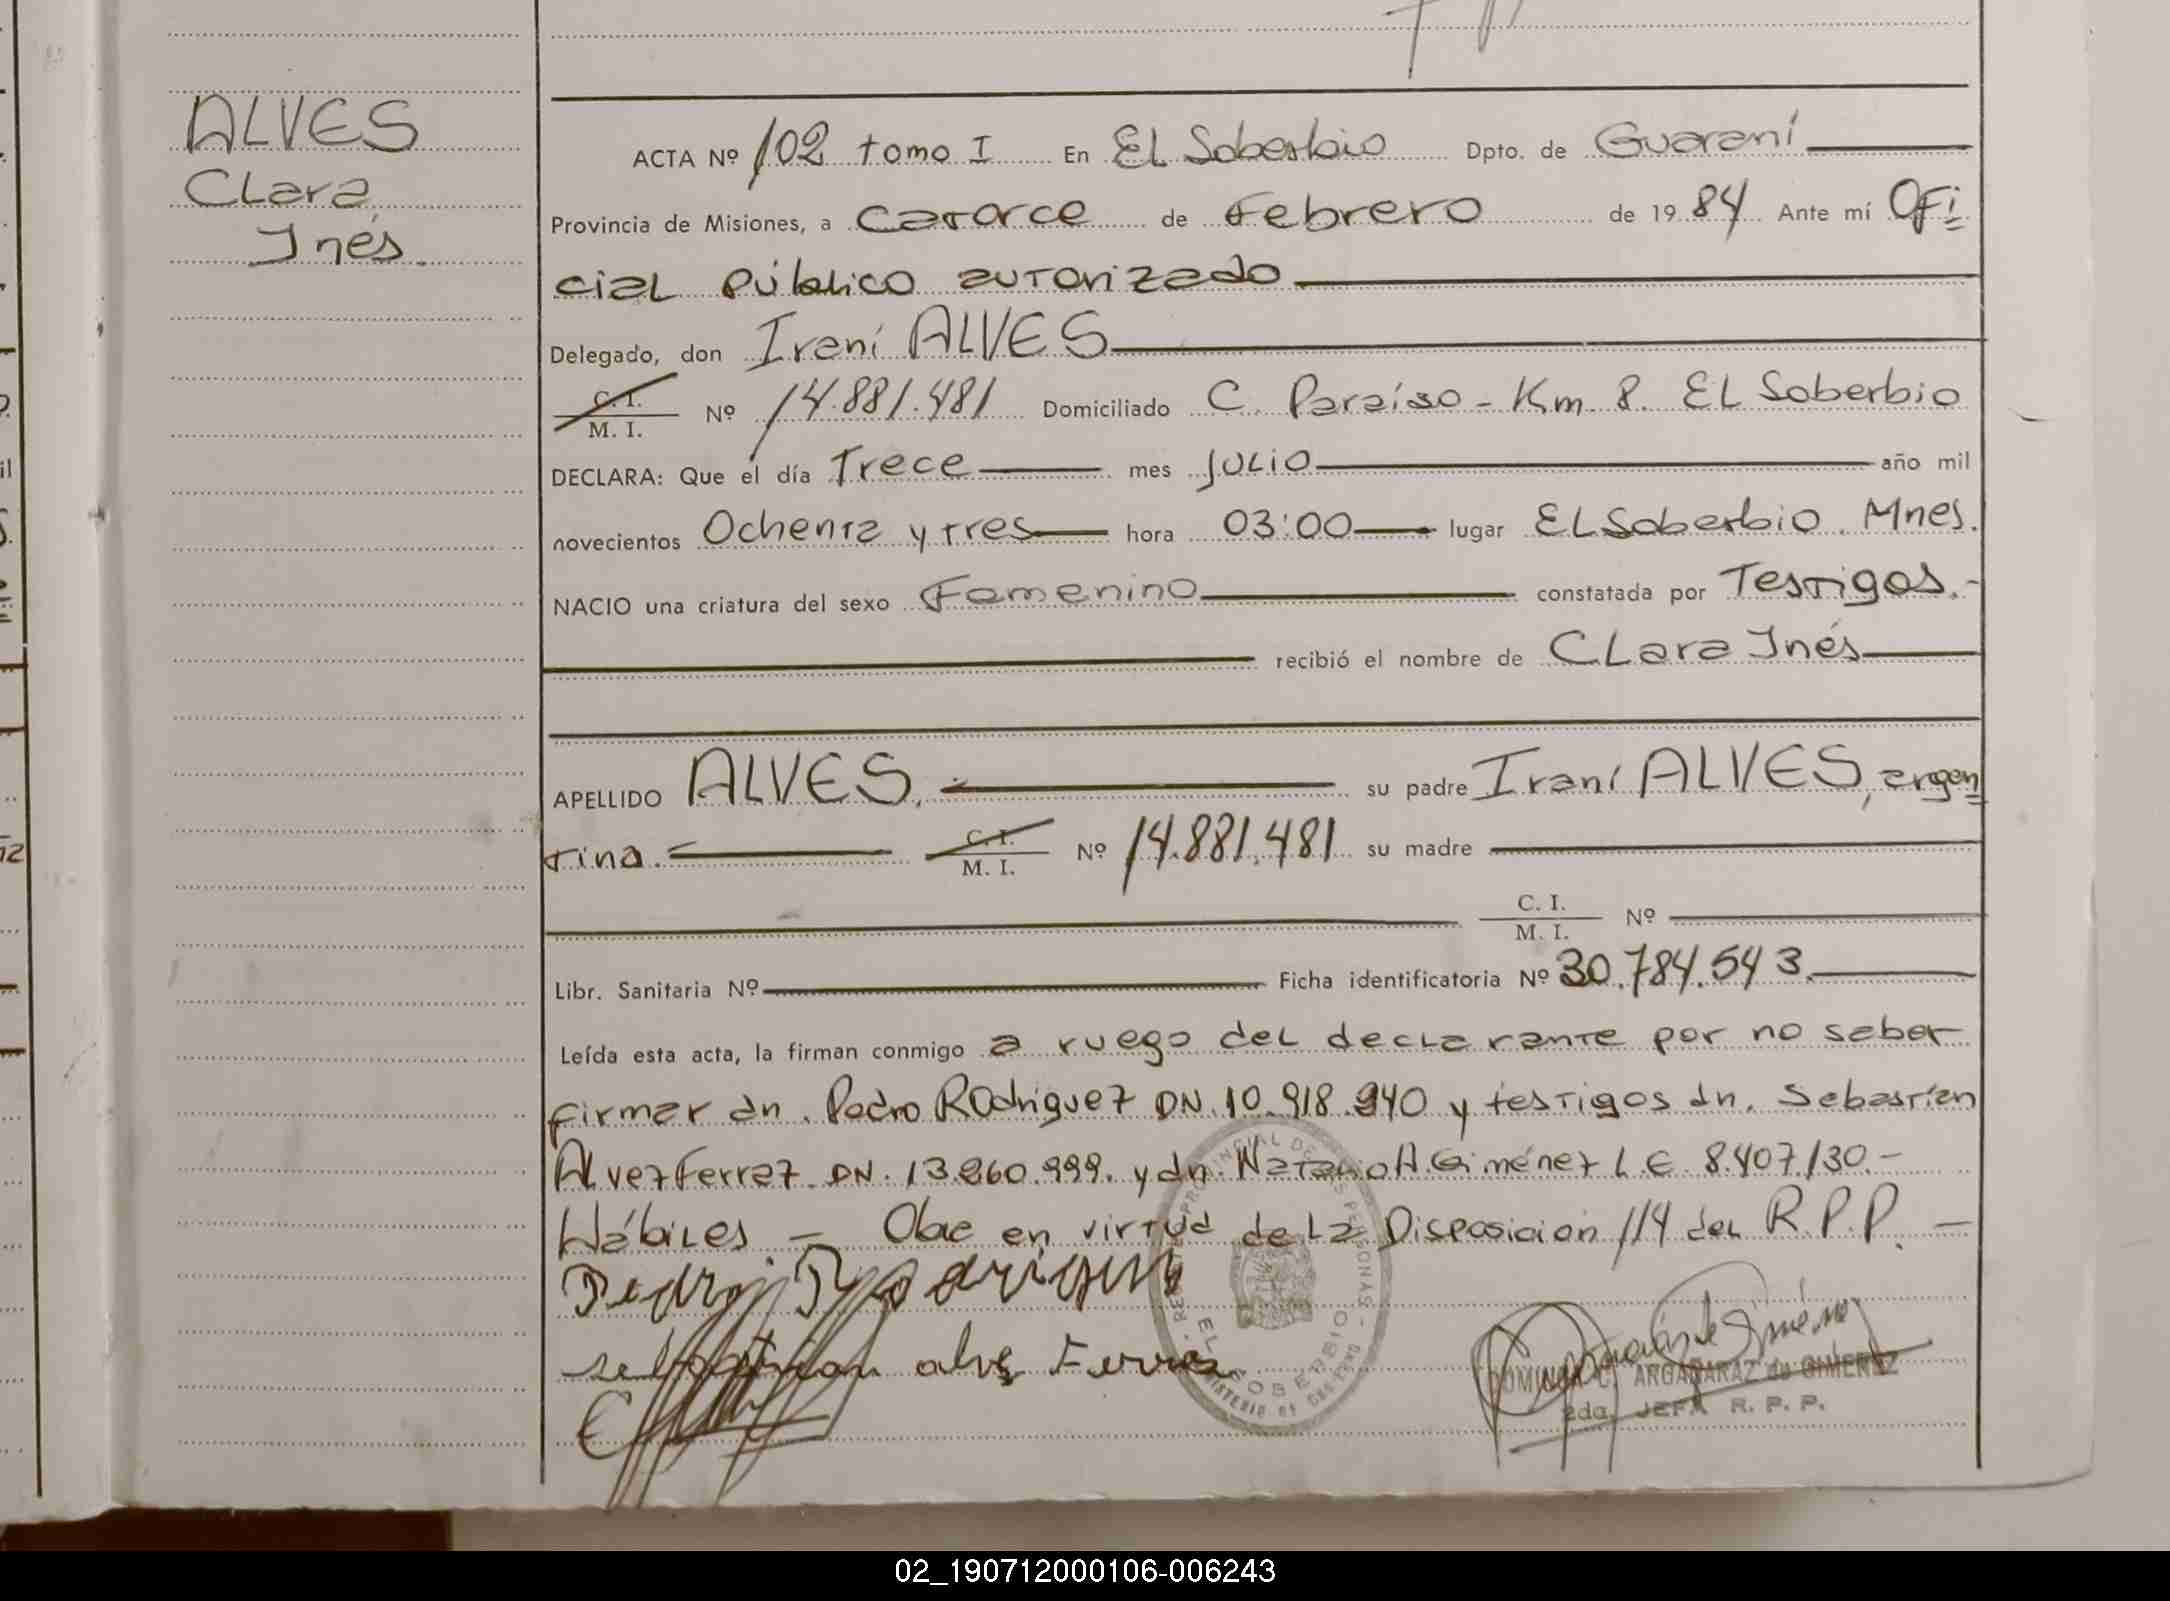 ALVES
Clara
Inés.
ACTA Nº 102 tomo I En El Soberbio Dpto. de Guaraní
Provincia de Misiones, a Catorce de Febrero de 1984 Ante mí Ofi
cial Público autorizado
Delegado, don Iraní ALVES
C. I.
M. I. Nº 14.881.481 Domiciliado C. Paraíso - Km 8. El Soberbio
DECLARA: Que el día Trece mes julio año mil
novecientos Ochenta y tres hora 03:00 lugar El Soberbio. Mnes.
NACIO una criatura del sexo Femenino constatada por Testigos.-
recibió el nombre de Clara Inés
APELLIDO ALVES. su padre Iraní ALVES, argen
tina. C. I. M. I. Nº 14.881.481 su madre
C. I.
M. I. Nº
Libr. Sanitaria Nº Ficha identificatoria Nº 30.784.543.
Leída esta acta, la firman conmigo a ruego del declarante por no saber
firmar dn. Pedro Rodriguez DN. 10.918.940 y testigos dn. Sebastián
Alvez Ferraz DN. 13.260.999. y dn. H. Giménez L E 8.407.130.-
Hábiles - Obae en virtud de la Disposición 114 del R.P.P. -
Pedro Rodrigue
sebastian alves Ferras
REGISTRO PROVINCIAL DE LAS PERSONAS
EL SOBERBIO
MINISTERIO DE GOBIERNO
DOMINGA C. ARGAÑARAZ de GIMENEZ
2da. JEFA R. P. P.
12
02_190712000106-006243